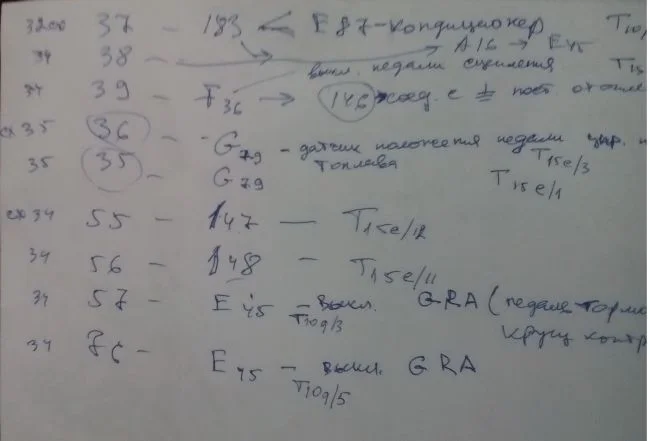 37 - 183 < E87-кондиционер T10/
34 38 - A16 → E45
выкл. педали сцепления T15
34 39 - F36 → 146 соед. с пост
сх 35 36 - G79 - датчик положения педали
топлива T15e/3
35 35 - G79 T15e/1
сх 34 55 - 147 - T15e/12
34 56 - 148 - T15e/11
34 57 - E45 - выкл. GRA (педаль тормо
T10g/3 круиз контр
34 76 - E45 - выкл. GRA
T10g/5